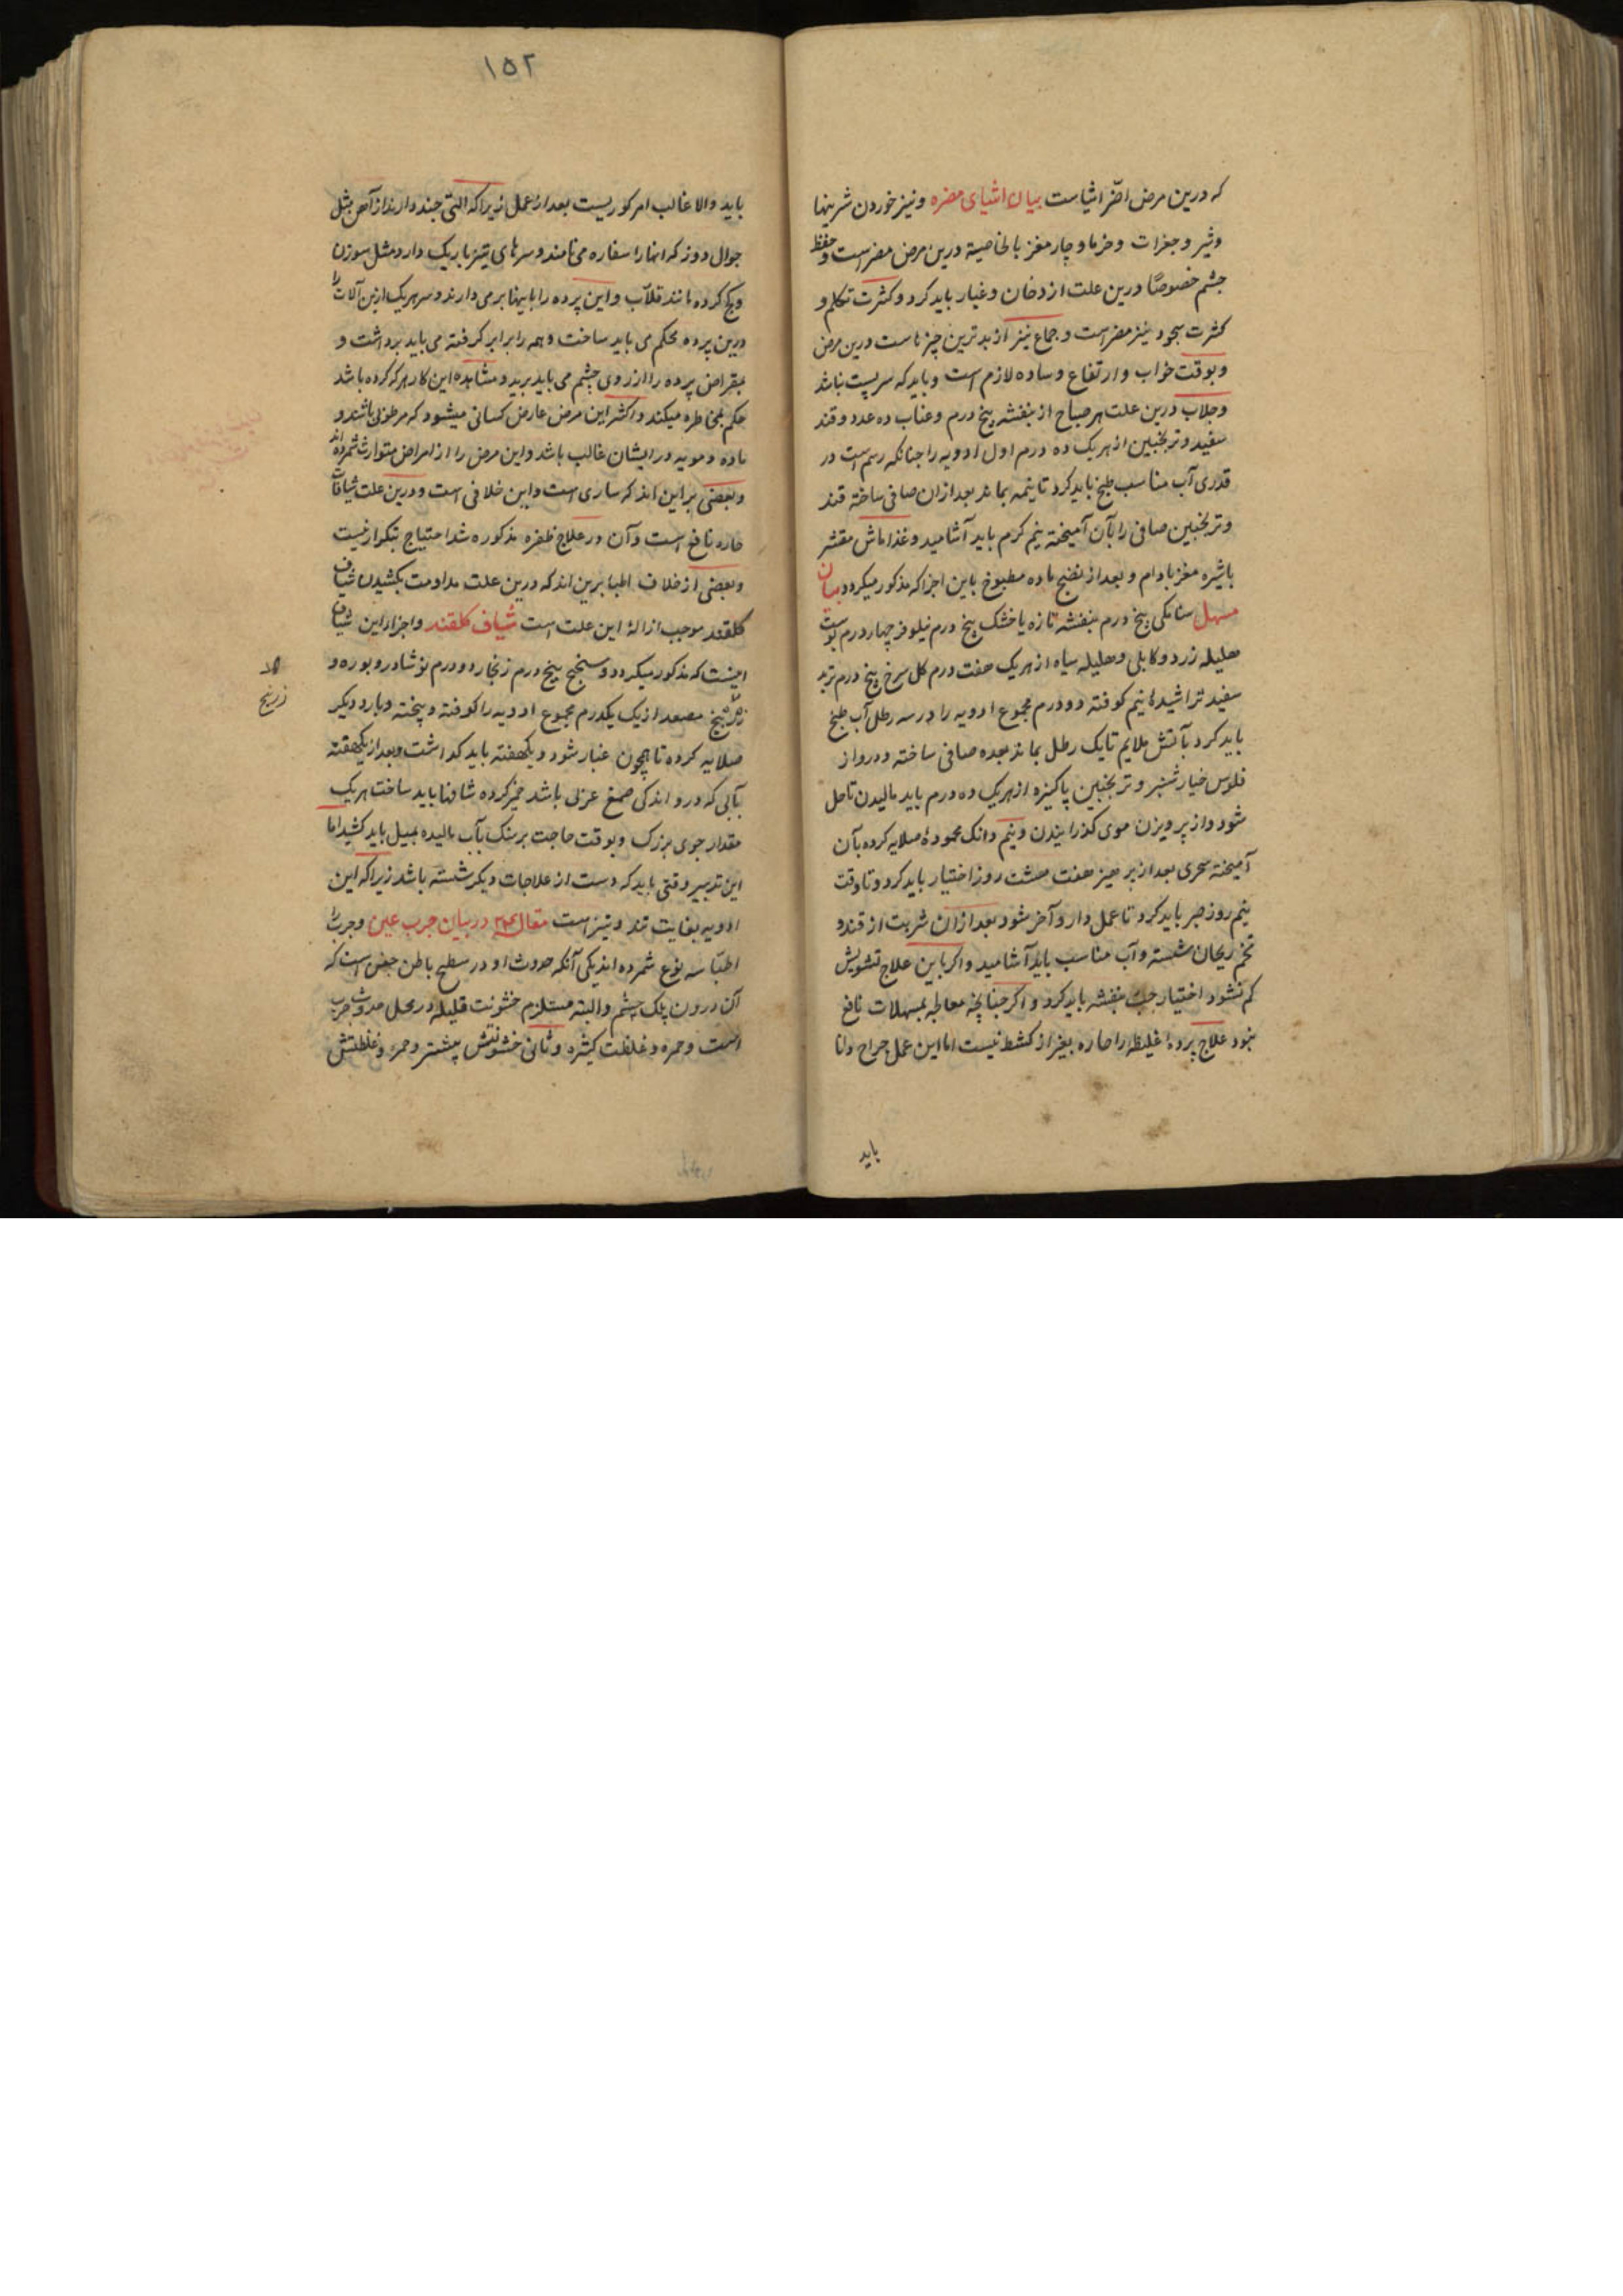 که درین مرض اضرّ اشیاست بیان اشیای مضره و نیز خوردن شرینها
و شیر و جغرات و خرما و چار مغز بالخاصیة درین مرض مضر است و حفظ
چشم خصوصًا درین علت از دخان و غبار باید کرد و کثرت تکلم و
کثرت سجود نیز مضر است و جماع نیز از بدترین چیزهاست درین مرض
و بوقت خواب وارتفاع وساده لازم است و باید که سر پست نباشد
و جلاب درین علت هر صباح از بنفشه پنج درم و عناب ده عدد و قند
سفید و ترنجبین از هر یک ده درم اول ادویه را چنانکه رسم است در
قدری آب مناسب طبخ باید کرد تا نیمه بماند بعد ازان صافی ساخته قند
و ترنجبین صافی را بآن آمیخته نیم کرم باید آشامید و غذا ماش مقشر
باشیره مغز بادام و بعد از نضج ماده مطبوخ باین اجزا که مذکور میکردد بیان
مسهل سنا مکی پنج درم بنفشه تازه یا خشک پنج درم نیلوفر چهار درم پوست
هلیله زرد و کابلی و هلیله سیاه از هر یک هفت درم کل سرخ پنج درم تربد
سفید تراشیدهٔ نیم کوفته دو درم مجموع ادویه را در سه رطل آب طبخ
باید کرد بآتش ملایم تا یک رطل بماند بعده صافی ساخته و درو از
فلوس خیار شنبر و ترنجبین پاکیزه از هریک ده درم باید مالیدن تا حل
شود و از پرویزن موی کذرانیدن و نیم دانک محمودهٔ صلایه کرده بآن
آمیخته سحری بعد از پرهیز هفت هشت روز اختیار باید کرد و تا وقت
نیم روز صبر باید کرد تا عمل دارو آخر شود بعد ازان شربت از قند و
تخم ریحان شسته و آب مناسب باید آشامید و اکر باین علاج تشویش
کم نشود اختیار حب بنفشه باید کرد و اکر چنانچه معالجه بمسهلات نافع
نبود علاج پردهٔ غلیظه را حاره بغیر از کشط نیست اما این عمل جراح دانا
باید
۱۵۲
باید والا غالب امر کوریست بعد از عمل زیرا که آلتی چند دارند از آهن مثل
جوال دوز که انها را سفاره می نامند و سرهای تیز باریک دارد مثل سوزن
و کج کرده مانند قلاّب و این پرده را باینها بر می دارند و سر هریک ازین آلات را
درین پرده محکم می باید ساخت و همه را برابر کرفته می باید برداشت و
بمقراض پرده را از روی چشم می باید برید و مشاهده این کار هر که کرده باشد
حکم بمخاطره میکند و اکثر این مرض عارض کسانی میشود که مرطوبی باشند و
ماده دمویه در ایشان غالب باشد و این مرض را از امراض متوارث شمرده اند
و بعضی براین اند که ساری است و این خلافی است و درین علت شیافات
حاره نافع است و آن در علاج ظفره مذکوره شد احتیاج بتکرار نیست
و بعضی از خلاف اطبا برین اند که درین علت مداومت بکشیدن شیاف
کلقند موجب ازالهٔ این علت است شیاف کلقند و اجزا این شیاف
اینست که مذکور میکردد سبنج پنج درم زنجار دو درم نوشادر و بوره و
زرنیخ مصعد از یک یکدرم مجموع ادویه را کوفته و پخته و بار دیکر
زرنیخ
صلایه کرده تا همچون غبار شود و یکهفته باید کداشت و بعد از یکهفته
بآبی که درو اندکی صمغ عربی باشد خمیر کرده شافها باید ساخت هریک
مقدار جوی بزرک و بوقت حاجت برسنک بآب مالیده بمیل باید کشید اما
این تدبیر وقتی باید که دست از علاجات دیکر شسته باشد زیرا که این
ادویه بغایت تند و تیز است مقاله در بیان جرب عین و جرب را
اطبّا سه نوع شمرده اند یکی آنکه حدوث او در سطح باطن جفن است که
آن درون پلک چشم و البته مستلزم خشونت قلیله در محل حدوث جرب
است و حمره و غلظت کثیره و ثانی خشونتش پیشتر و حمره و غلظتش